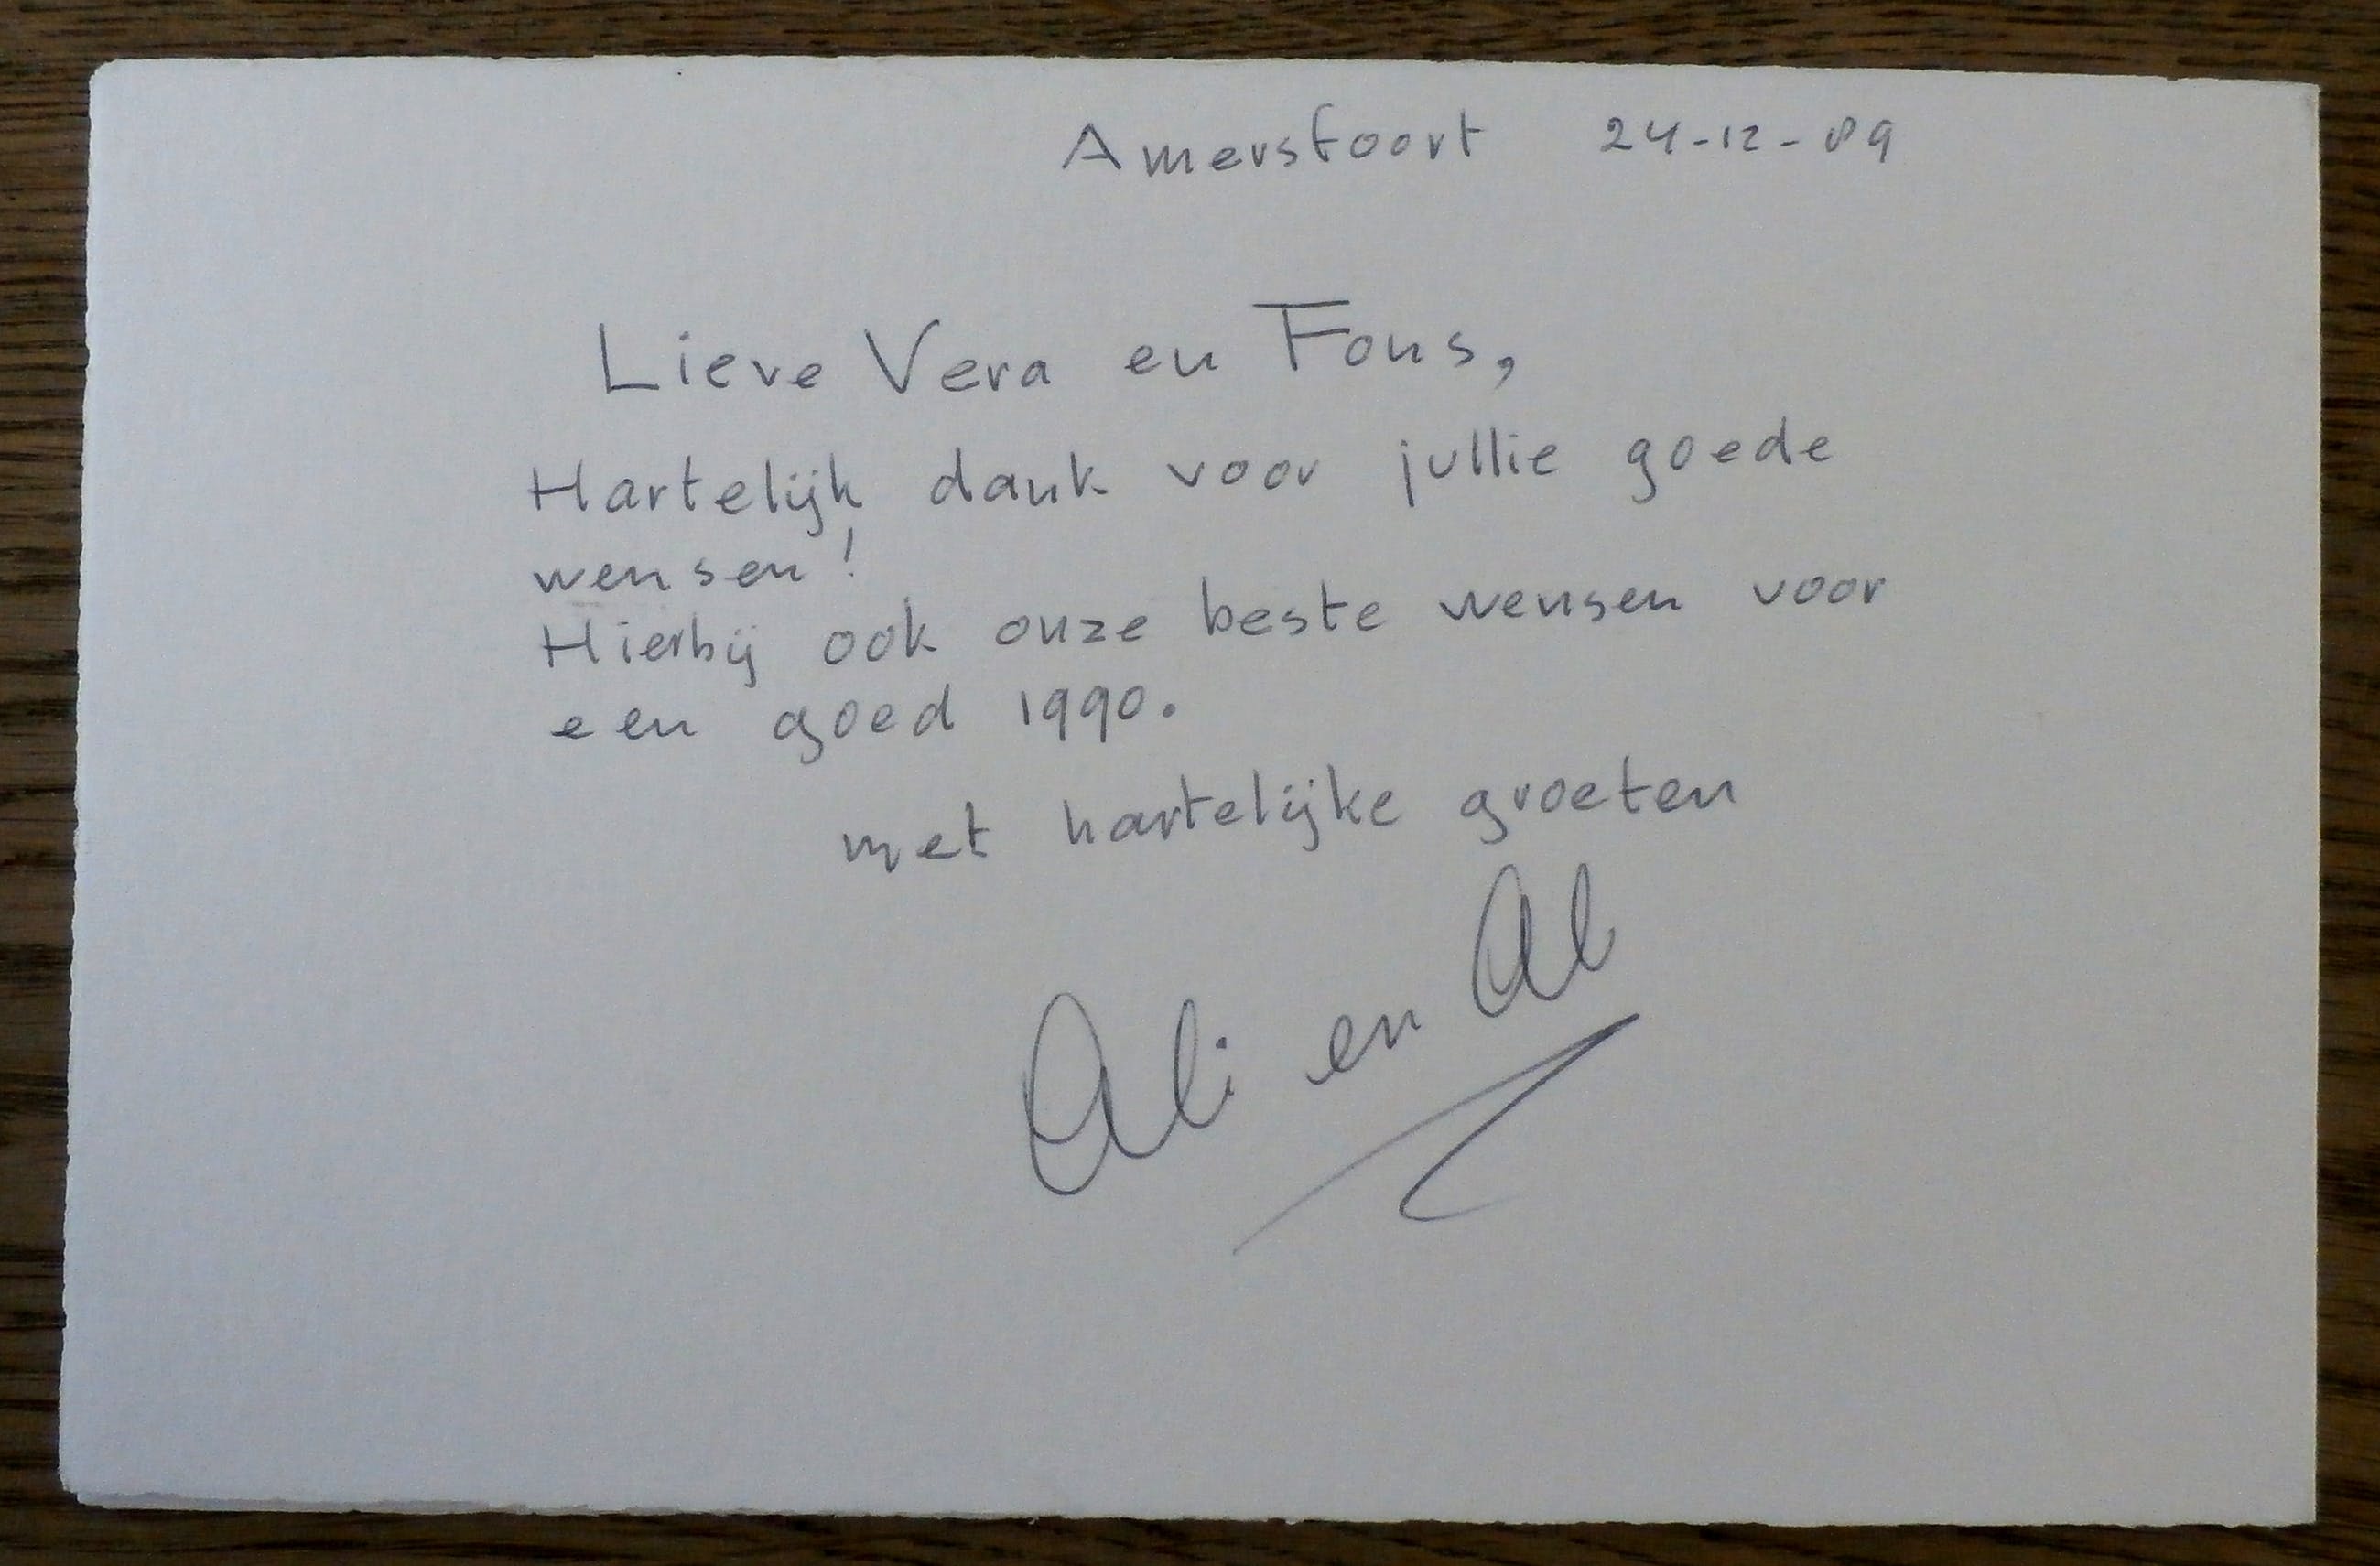 Amersfoort 24-12-89
Lieve Vera en Fons,
Hartelijk dank voor jullie goede
wensen!
Hierbij ook onze beste wensen voor
een goed 1990.
met hartelijke groeten
Ali en Al